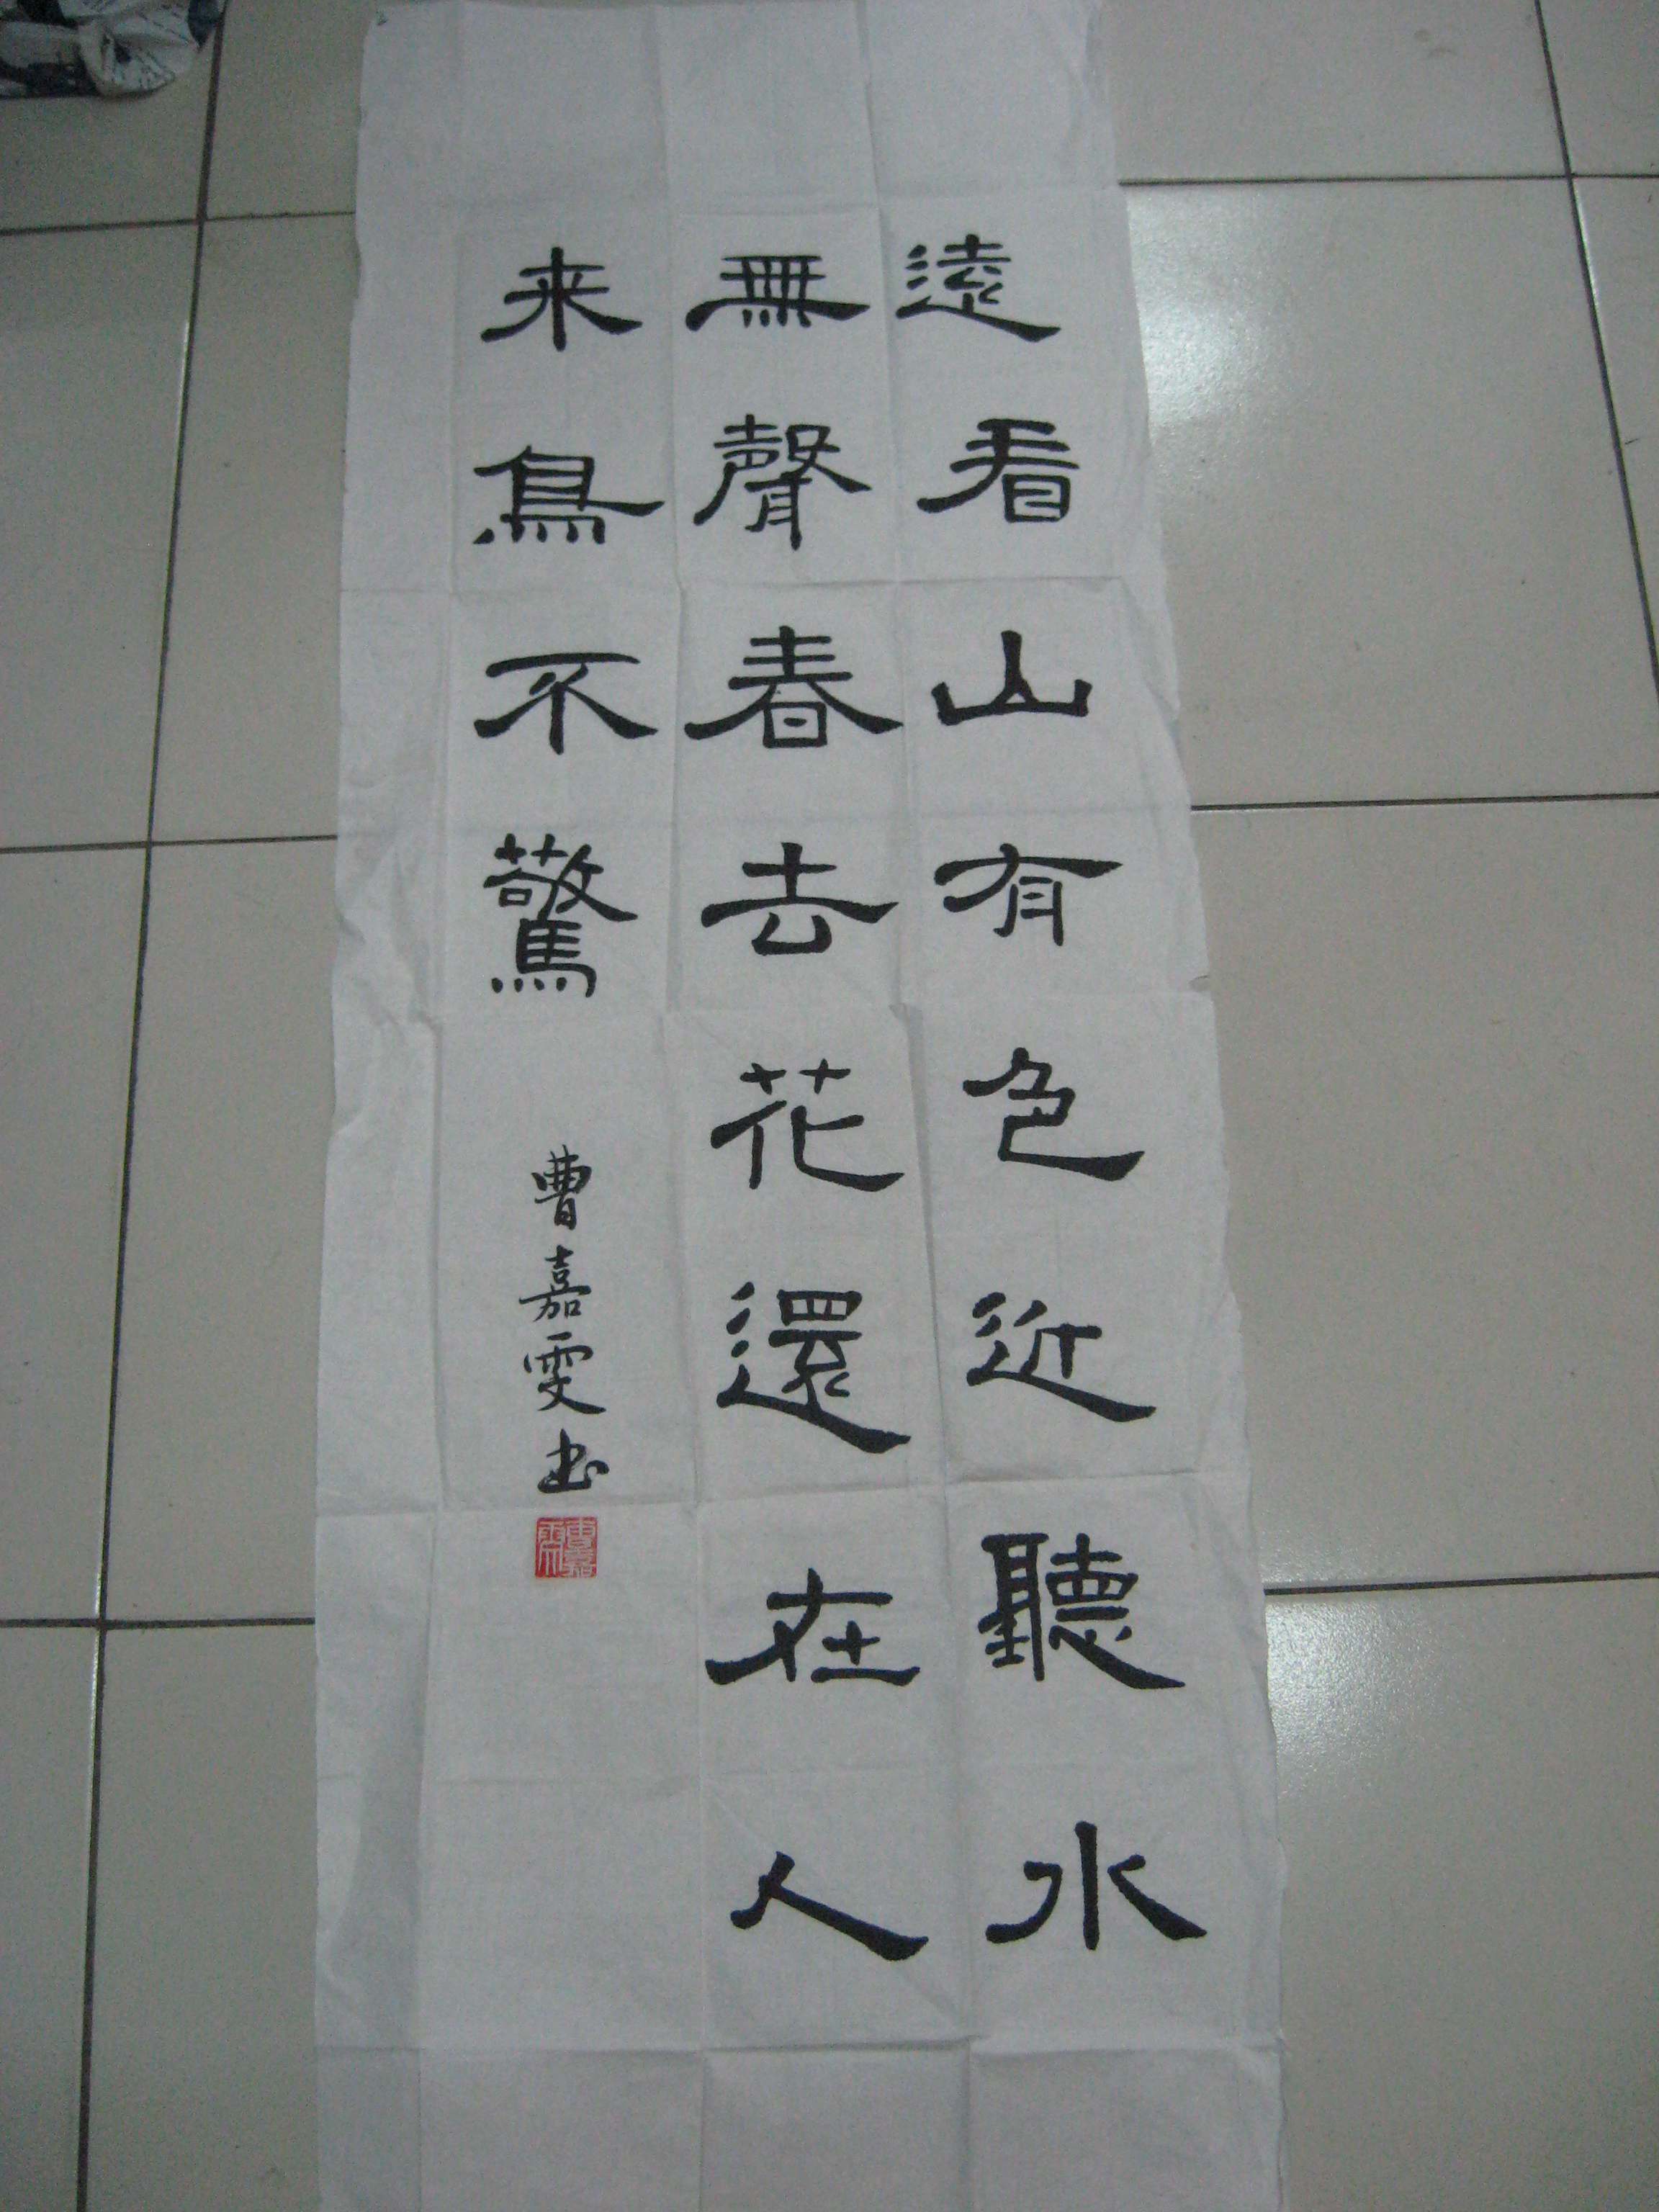 遠看山有色近聽水
無聲春去花還在人
来鳥不驚
曹嘉雯书
曹嘉雯